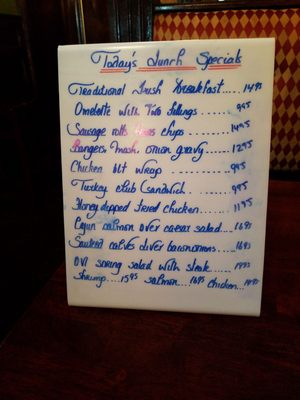 Today's Lunch Specials
Traditional Irish Breakfast.... 1495
Omelette with Two fillings ...... 995
Sausage rolls chips ........ 1495
Bangers, mash, onion gravy ...... 1295
Chicken blt wrap ......... 995
Turkey club sandwich ........ 995
Honey dipped fried chicken...... 1195
Cajun salmon over caesar salad.... 1695
Sauteed calves liver bacon onions... 1695
salad with steak .... 1995
Shrimp.... 1595 salmon... 1695 Chicken... 1495